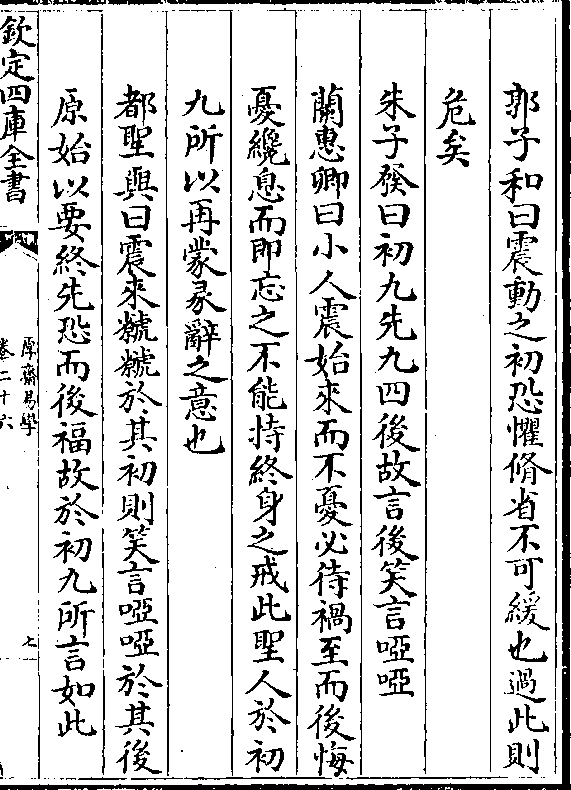 郭子和曰震動之初恐懼脩省不可緩也過此則
危矣
朱子發曰初九先九四後故言後笑言啞啞
蘭惠卿曰小人震始來而不憂必待禍至而後悔
憂纔息而即忘之不能持終身之戒此聖人於初
九所以再蒙彖辭之意也
都聖與曰震來虩虩於其初則笑言啞啞於其後
原始以要終先恐而後福故於初九所言如此
欽定四庫全書
厚齋易學
卷二十六
七